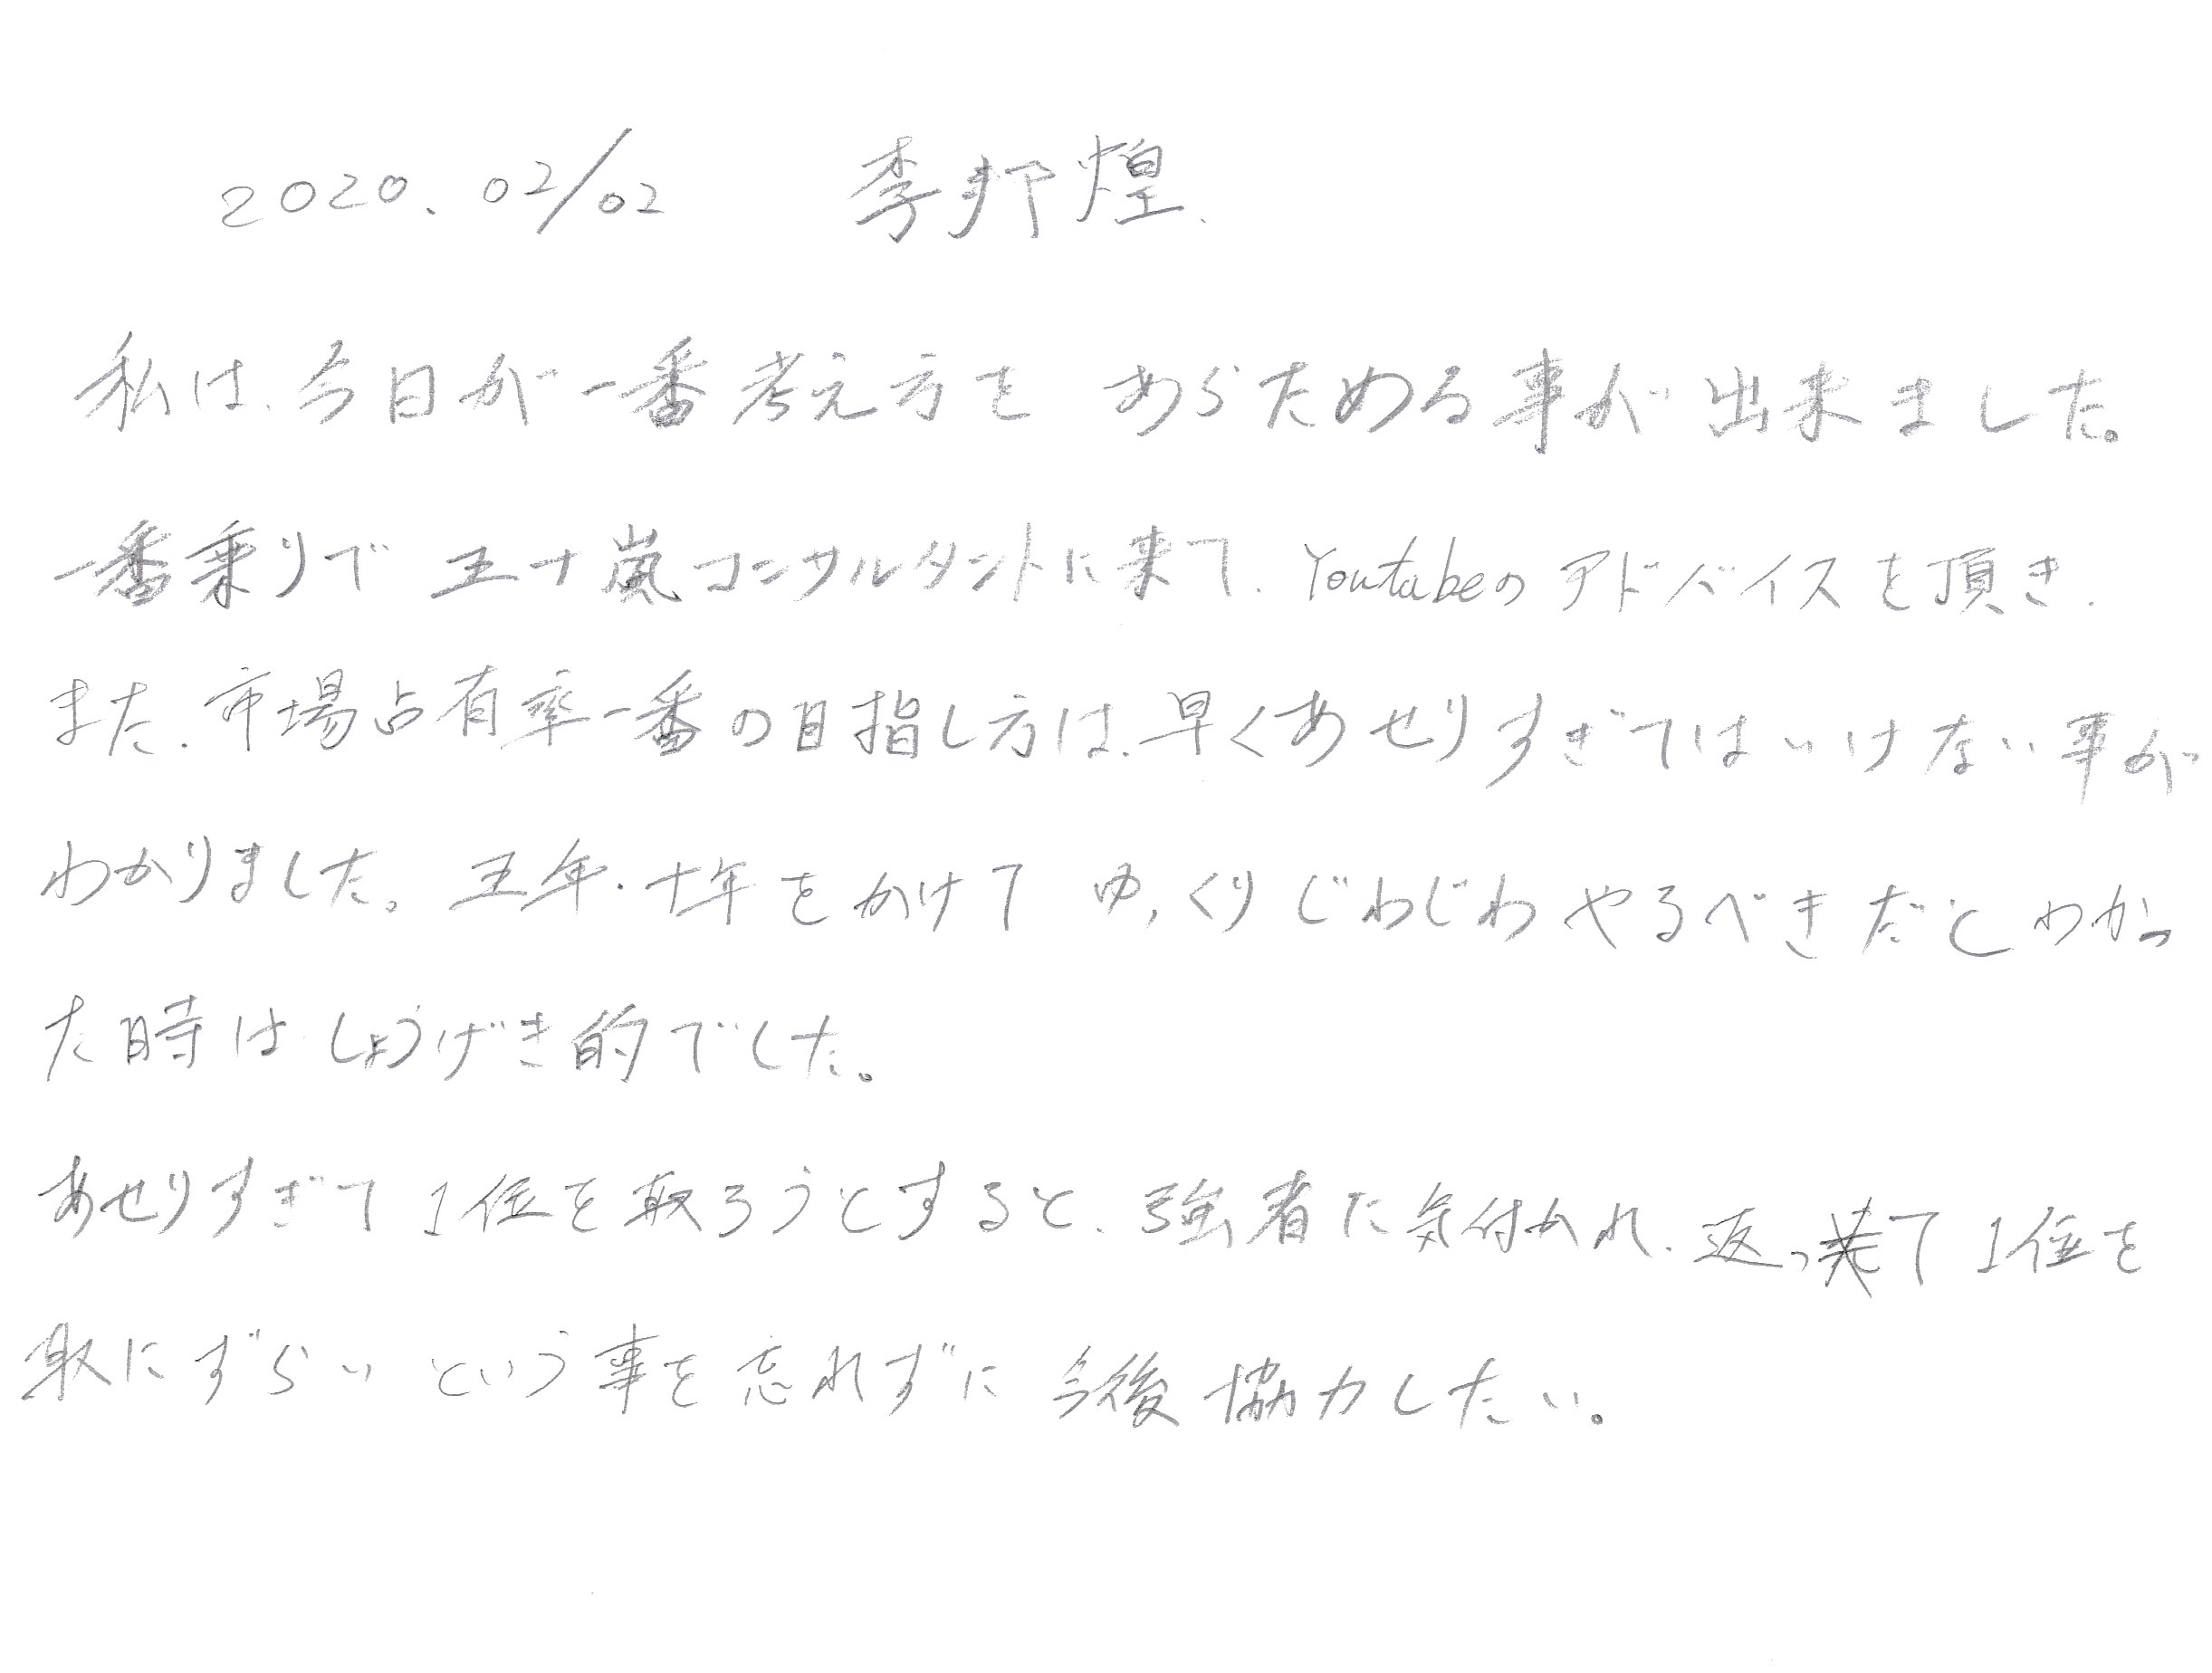 2020. 02/02 李邦煌.
私は、今日が一番考え方を あらためる事が出来ました。
一番乗りで 五十嵐コンサルタントに来て、Youtubeの アドバイスを頂き、
また、市場占有率一番の目指し方は、早くあせりすぎてはいけない事が
わかりました。五年・十年をかけて ゆっくり じわじわ やるべきだと わかっ
た時は しょうげき的でした。
あせりすぎて 1位を取ろうとすると、強者に気付かれ、返って 1位を
取にずらい という事を忘れずに 今後 協力したい。